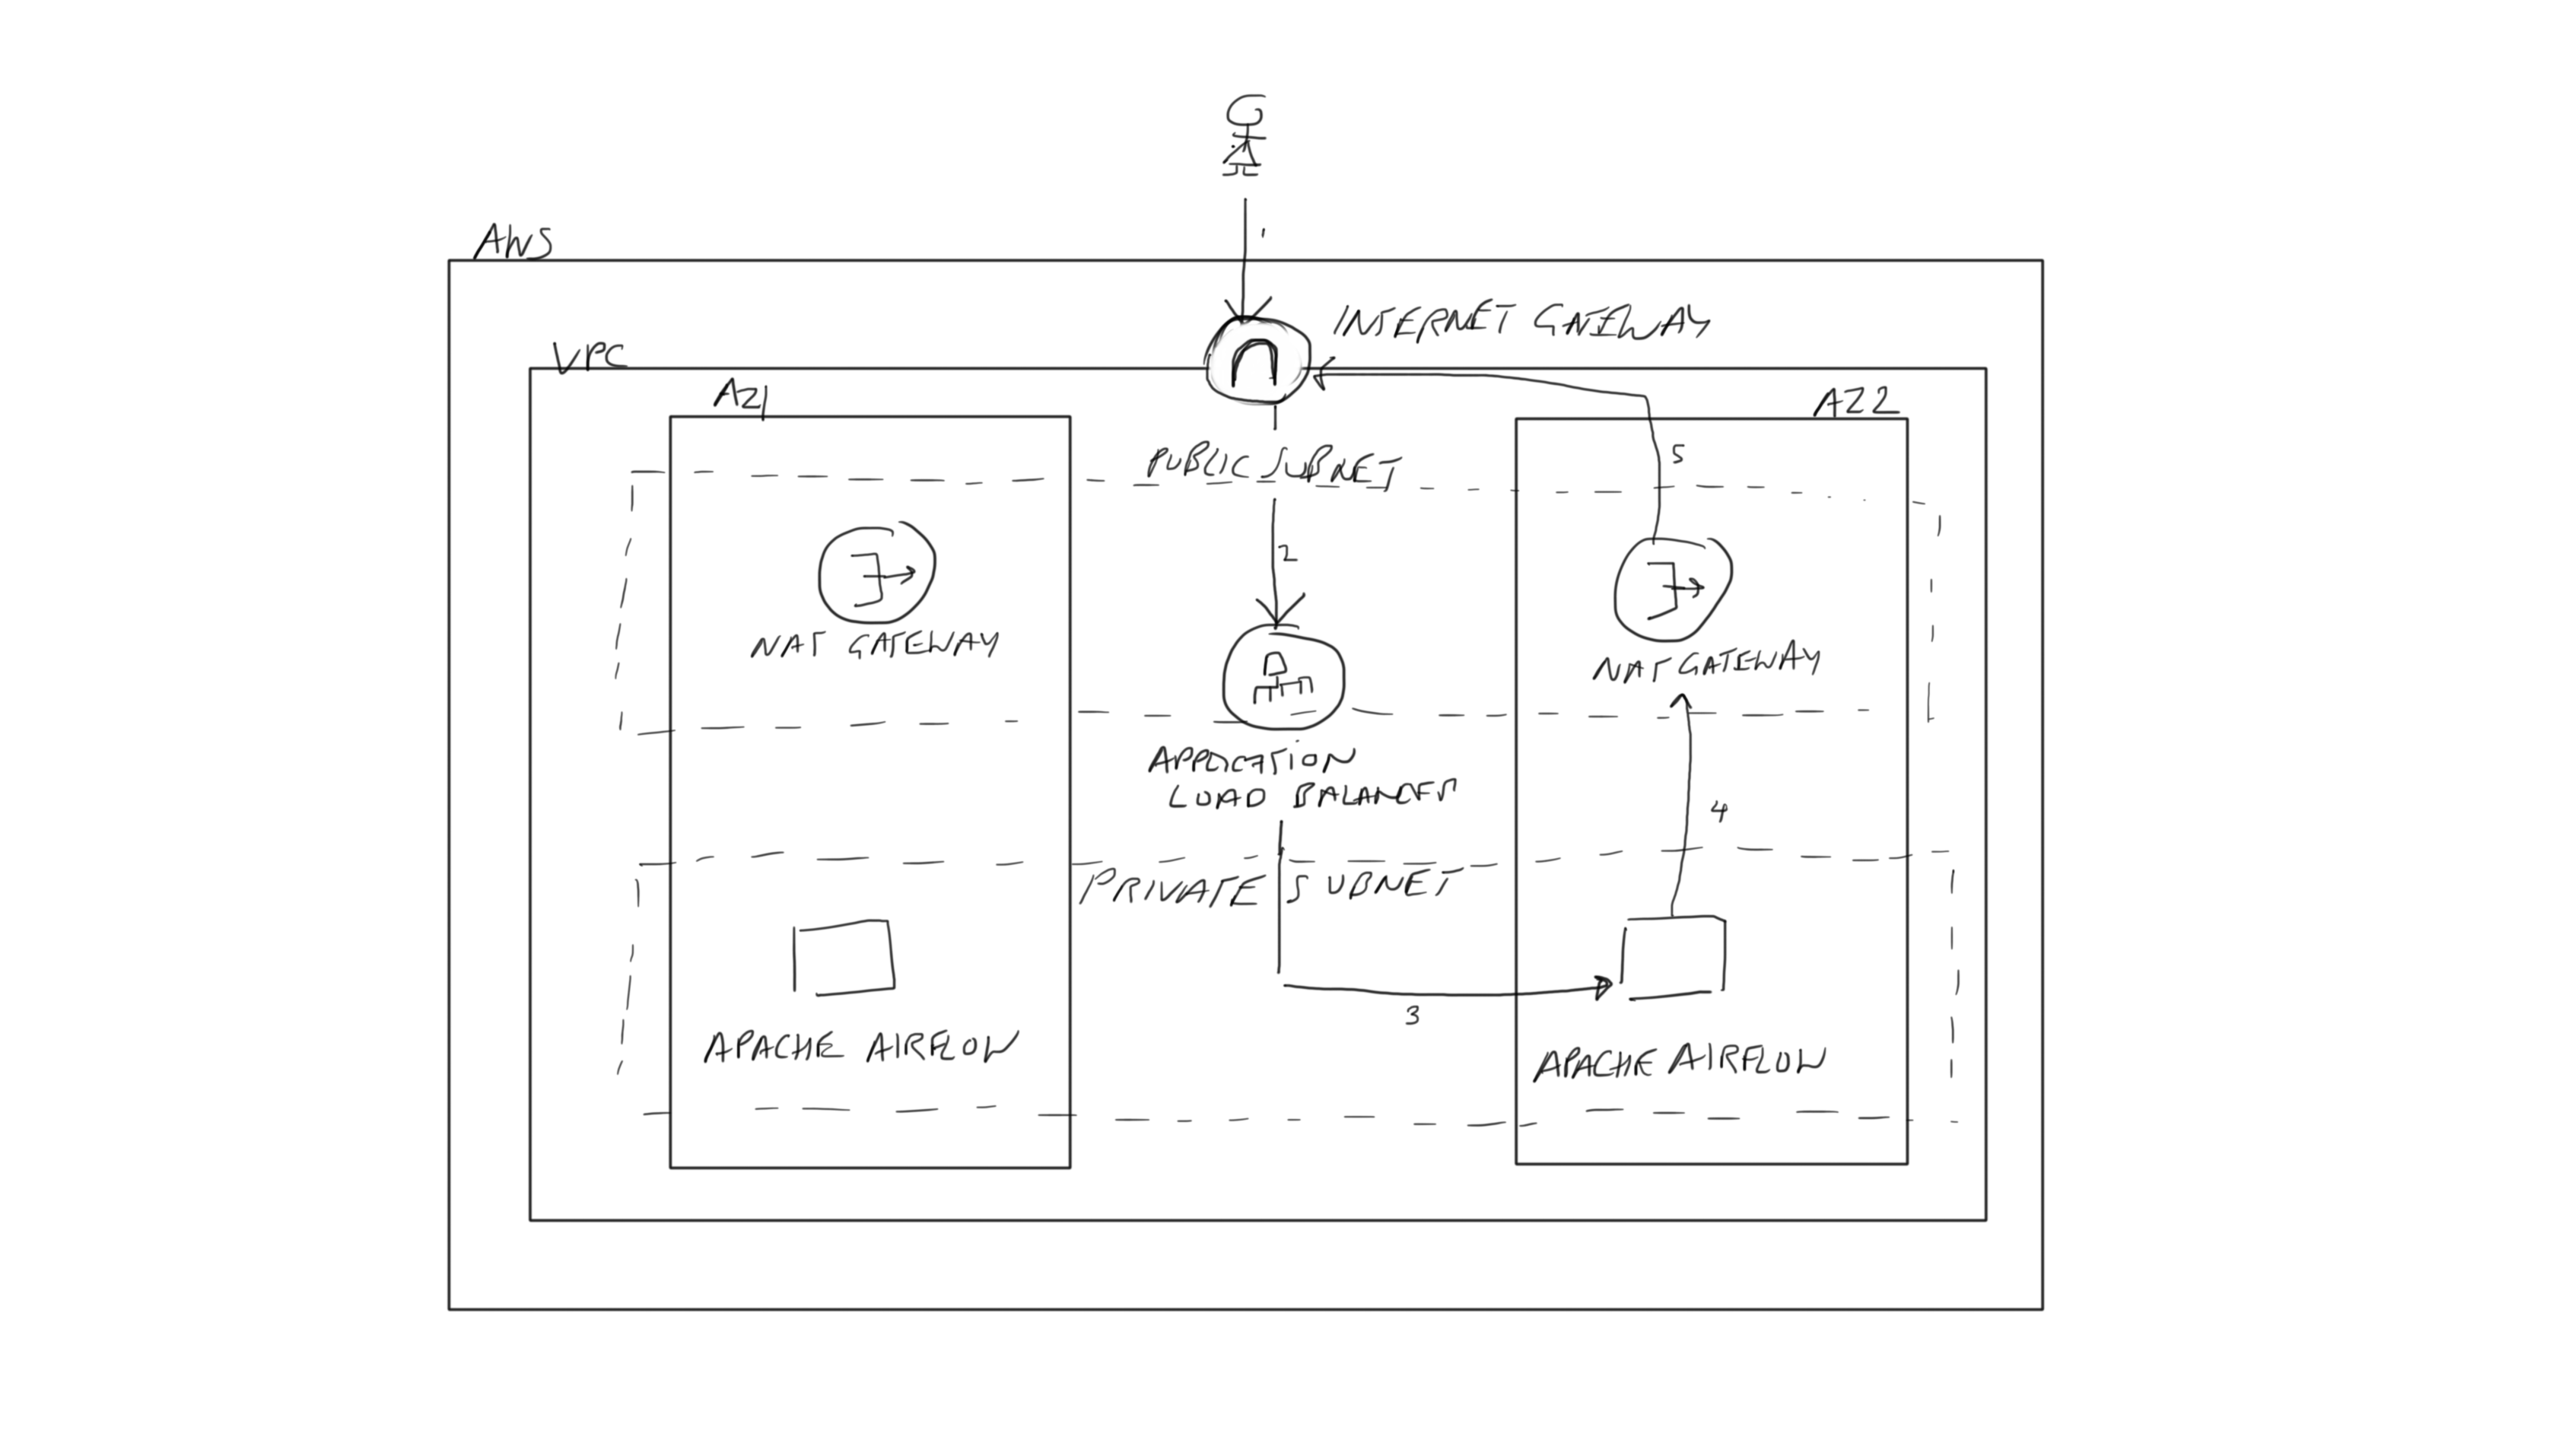 1
AWS
INTERNET GATEWAY
VPC
AZ1
AZ2
PUBLIC SUBNET
5
2
NAT GATEWAY
NAT GATEWAY
APPLICATION
LOAD BALANCER
4
PRIVATE SUBNET
3
APACHE AIRFLOW
APACHE AIRFLOW